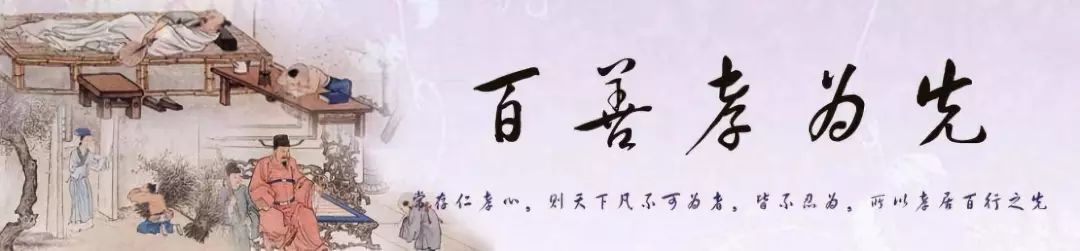 百善孝为先
常存仁孝心，则天下凡不可为者，皆不忍为，所以孝居百行之先